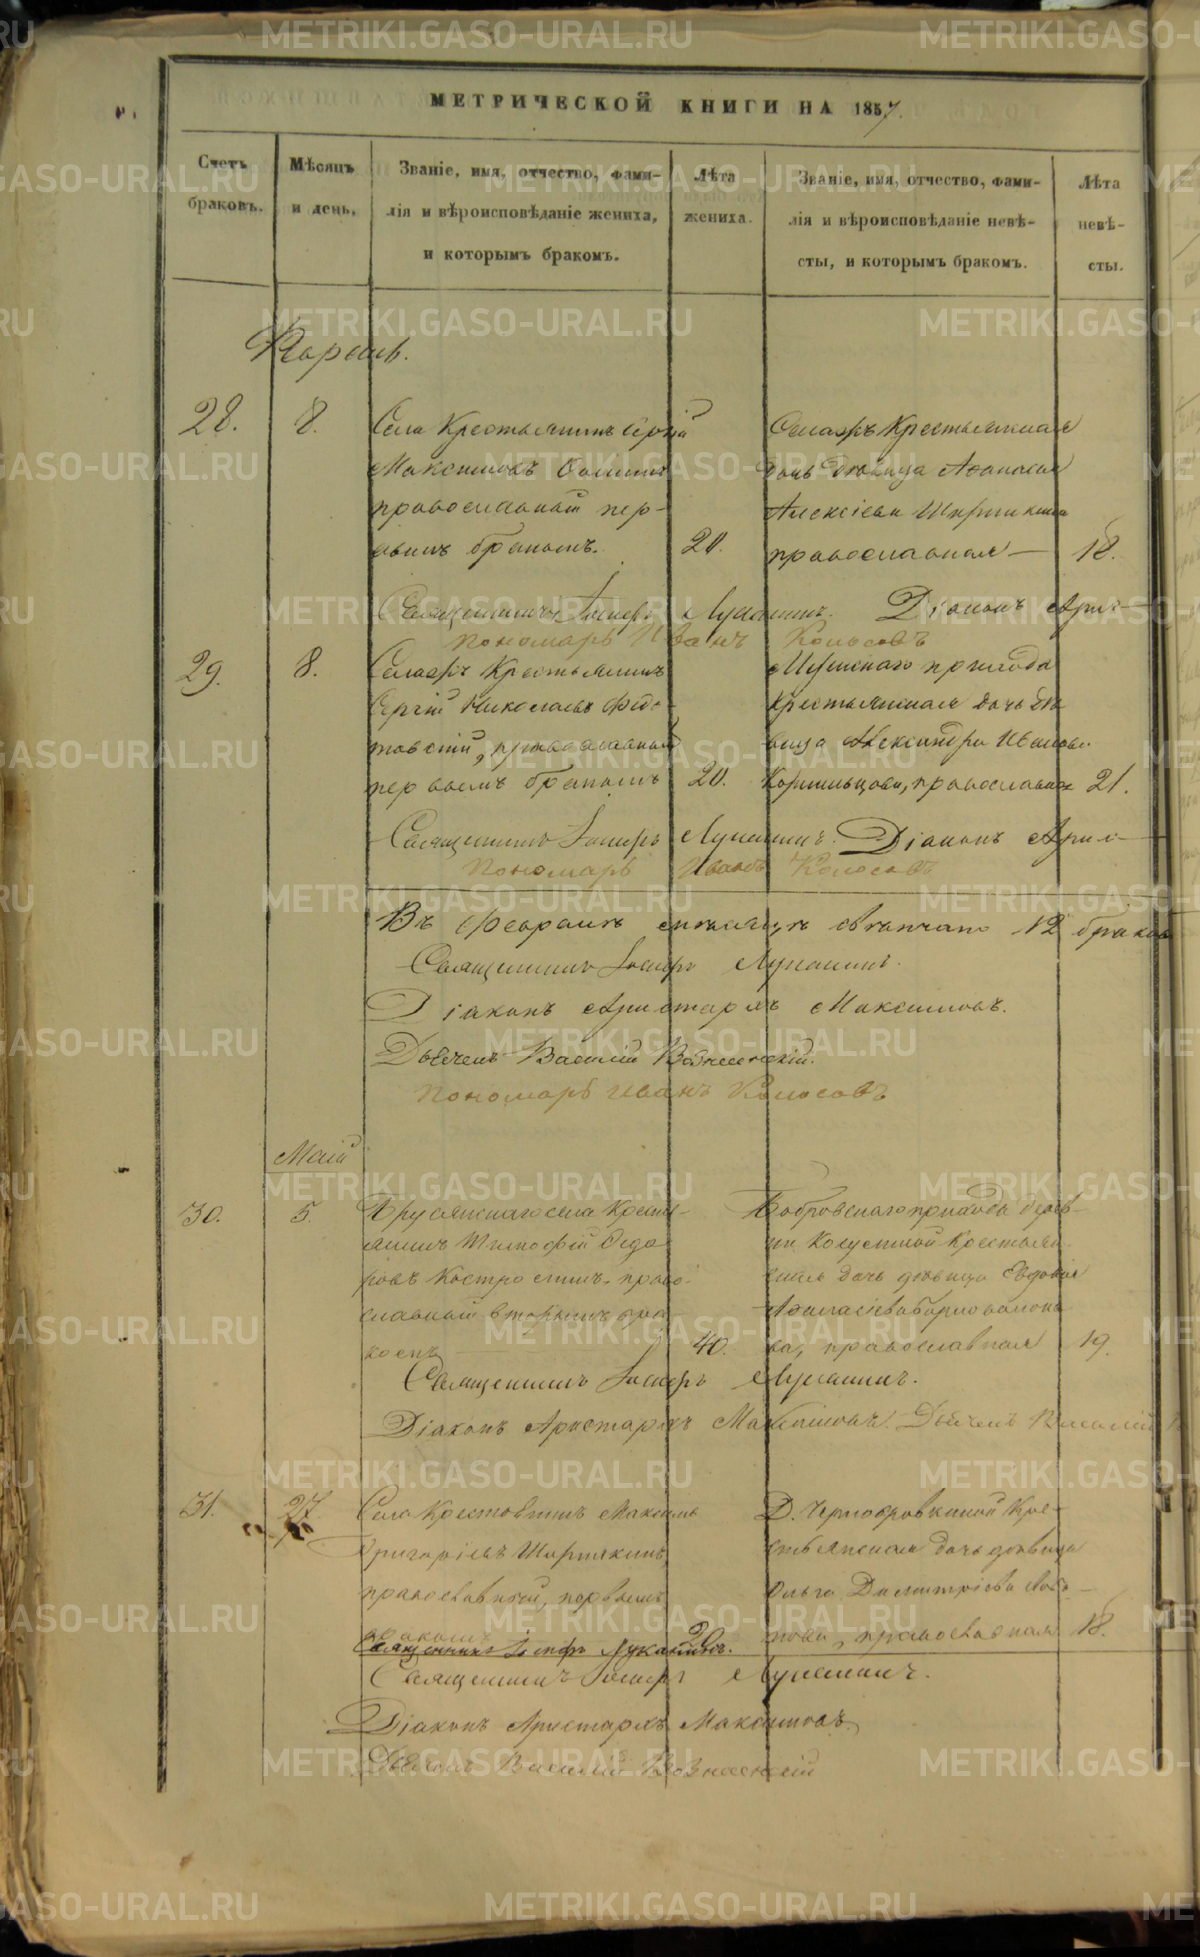 МЕТРИЧЕСКОЙ КНИГИ НА 1857.
Счетъ браковъ.
Мѣсяцъ и день.
Званіе, имя, отчество, фами-
лія и вѣроисповѣданіе жениха,
и которымъ бракомъ.
Лѣта жениха.
Званіе, имя, отчество, фами-
лія и вѣроисповѣданіе невѣ-
сты, и которымъ бракомъ.
Лѣта невѣ-
сты.
28.
8.
Села Крестьянинъ Сергій
Максимовъ
православный пер-
вымъ бракомъ.
20.
Крестьянская
дочь дѣвица Афанасія
Алексіева
православная
18.
Священникъ Іосифъ Луканинъ. Діаконъ Арис-
Пономарь Иванъ Колосовъ
29.
8.
Крестьянинъ
Сергій Николаевъ Федо-
товскій, православный
первымъ бракомъ
20.
прихода
Крестьянская дочь дѣ-
вица Александра Иванова
Кормильцова, православная
21.
Священникъ Іосифъ Луканинъ. Діаконъ Арис-
Пономарь Иванъ Колосовъ
Въ Февралѣ мѣсяцѣ вѣнчано 12 браковъ
Священникъ Іосифъ Луканинъ.
Діаконъ Аристархъ Максимовъ.
Дьячекъ Василій Вознесенскій.
Пономарь Иванъ Колосовъ
Маій
30.
5.
Бруснянскаго села Кресть-
янинъ Тимофій Федо-
ровъ Костроминъ, право-
славный вторымъ бра-
комъ
40.
Бобровскаго прихода дерев-
ни Крестьян-
ская дочь дѣвица Евдокія
ва, православная
19.
Священникъ Іосифъ Луканинъ.
Діаконъ Аристархъ Максимовъ. Дьячекъ Василій
31.
27.
Села Крестьянинъ Максимъ
Григоріевъ Ширшикинъ,
православный, первымъ
бракомъ
20.
Д. Чернобровкиной Кре-
стьянская дочь дѣвица
Ольга Димитріева
нова, православная
18.
Священникъ Іосифъ Луканинъ.
Священникъ Іосифъ Луканинъ.
Діаконъ Аристархъ Максимовъ.
Дьячекъ Василій Вознесенскій
METRIKI.GASO-URAL.RU